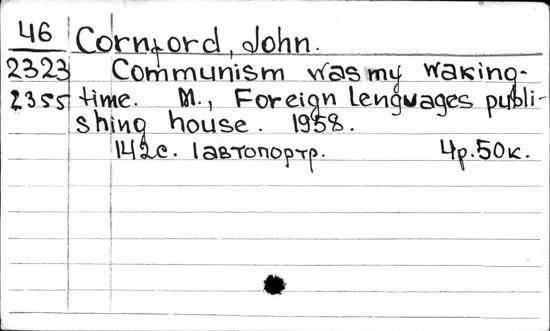 46 Cornford, John.
2323 Communism was my waking-
2355 time. M., Foreign Lenguages publi-
shing house. 1958.
142с. 1автопортр. 4р.50к.